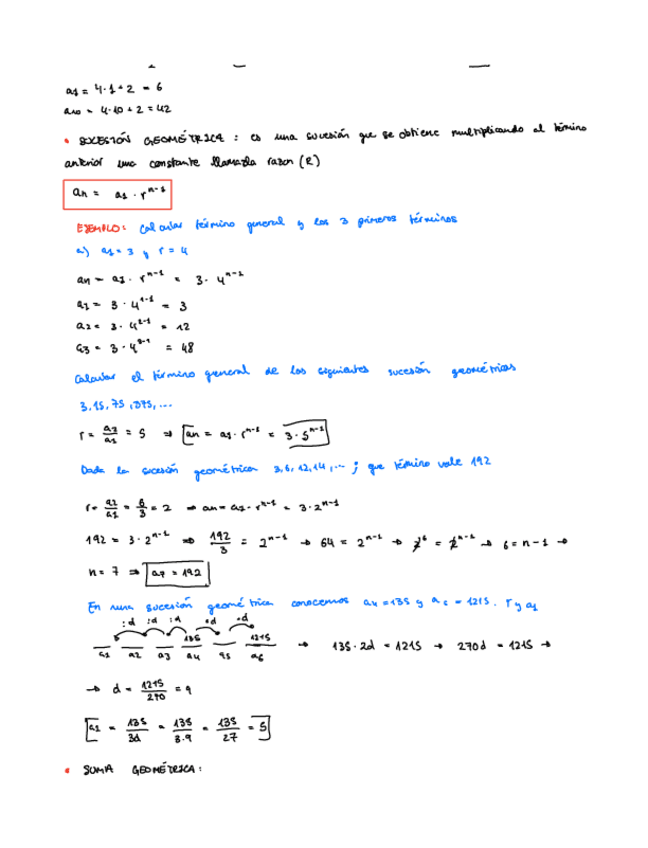 a1 = 4·1+2 = 6
a10 = 4·10+2 = 42
• SUCESIÓN GEOMÉTRICA: es una sucesión que se obtiene multiplicando al término
anterior una constante llamada razon (R)
an = a1 · r^n-1
EJEMPLO: Calcular término general y los 3 primeros términos
a) a1 = 3 y r = 4
an = a1 · r^n-1 = 3 · 4^n-1
a1 = 3 · 4^1-1 = 3
a2 = 3 · 4^2-1 = 12
a3 = 3 · 4^3-1 = 48
Calcular el término general de las siguientes sucesión geométricas
3, 15, 75, 375, ...
r = a2/a1 = 5 ⇒ an = a1 · r^n-1 = 3 · 5^n-1
Dada la sucesión geométrica 3, 6, 12, 14, ... ; que término vale 192
r = a2/a1 = 6/3 = 2 ⇒ an = a1 · r^n-1 = 3 · 2^n-1
192 = 3 · 2^n-1 ⇒ 192/3 = 2^n-1 → 64 = 2^n-1 → 2^6 = 2^n-1 → 6 = n-1 →
n = 7 ⇒ a7 = 192
En una sucesión geométrica conocemos a4 = 135 y a6 = 1215. r y a1
:d :d :d ·d ·d
135 1215
a1 a2 a3 a4 a5 a6 → 135 · 2d = 1215 → 270d = 1215 →
→ d = 1215/270 = 9
a1 = 135/3d = 135/3·9 = 135/27 = 5
• SUMA GEOMÉTRICA: